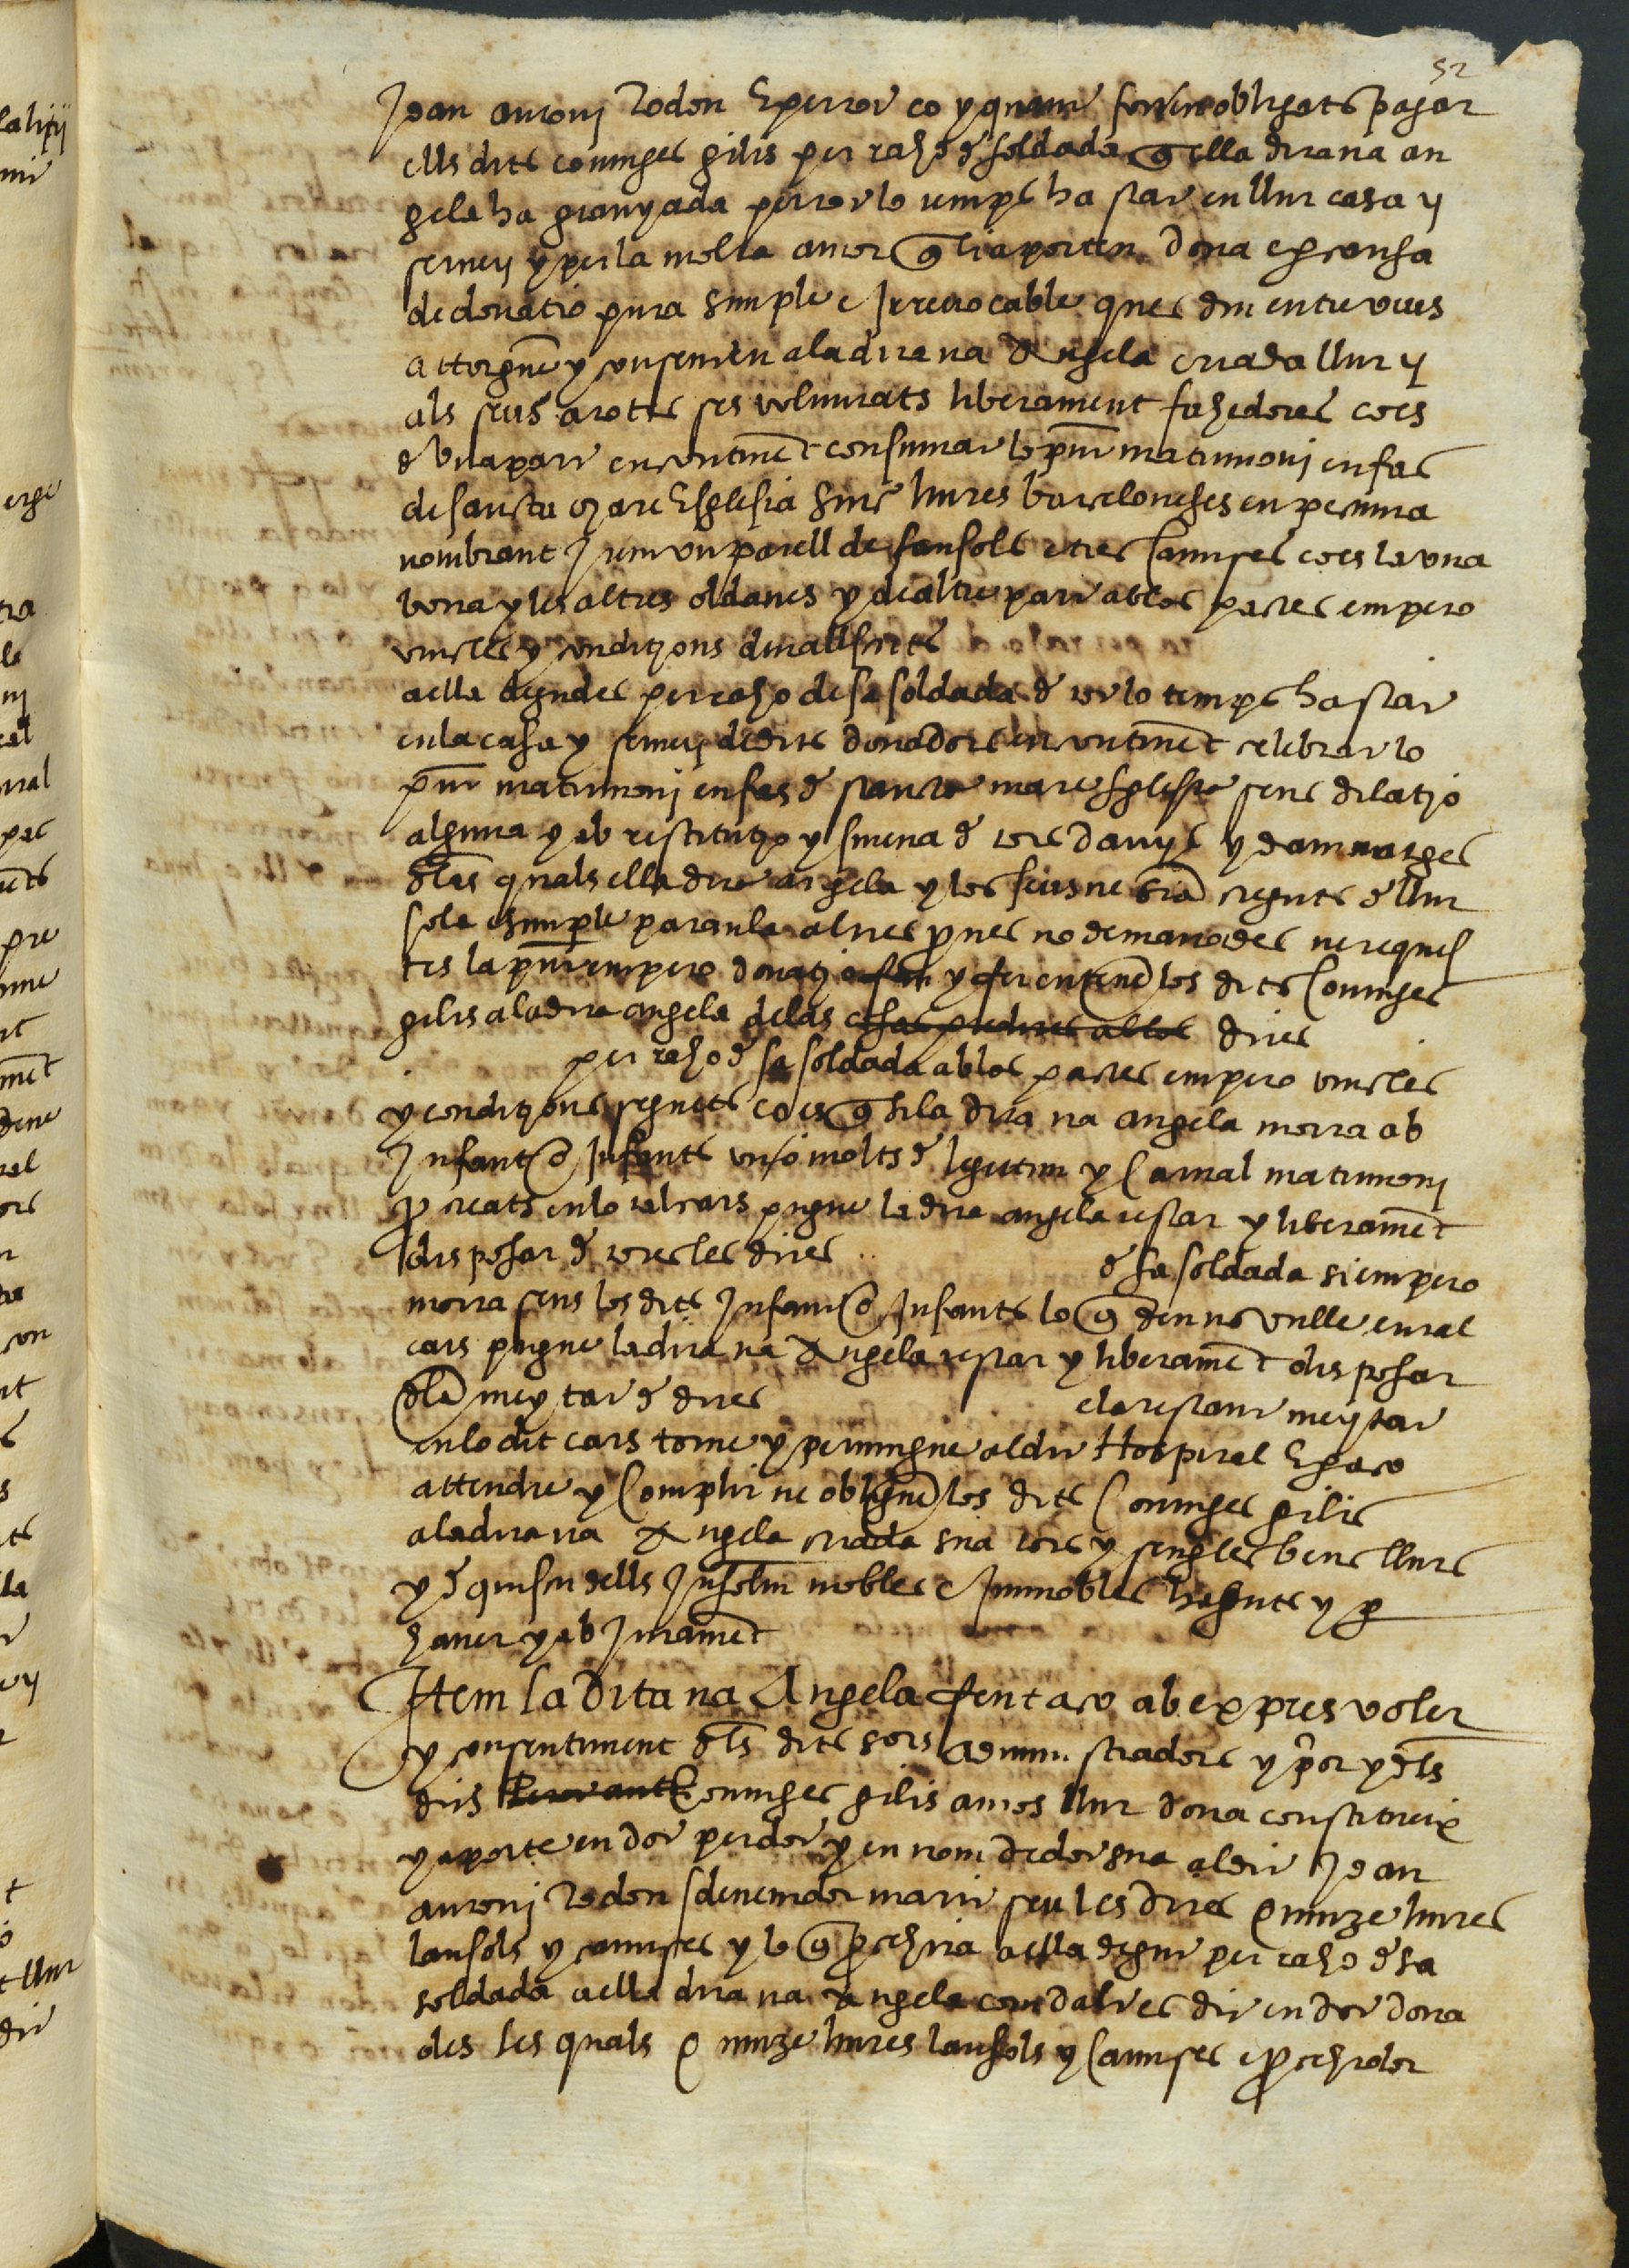 52
Joan antoni Rodon E per tot ço y quant fossen obligats pagar
ells dits coniuges gilis per raho de soldada q ella dita na an
gela ha guanyada per tot lo temps ha stat en llur casa y
servey y per la molta amor q li aporten dona e per causa
de donatio pura simple e Irrevocable ques diu entre vius
attorguen y consenten a la dita na Angela criada llur y
als seus a totes ses voluntats liberament fahedores ço es
de una part encontinent consumat lo pnt matrimoni en fas
de sancta mare Esglesia sinc liures barceloneses en pecunia
nombrant Item un parell de lansols e tres Camises ço es la una
bona y les altres oldanes y de altre part ab los pactes empero
vincles y conditions devall scrits
a ella degudes per raho de sa soldada de tot lo temps ha stat
en la casa y servey de dits donadors encontinent celebrat lo
pnt matrimoni en fas de sancta mare sglesia sens dilatio
alguna y ab restitutio y smena de tots danys y damnatges
dels quals ella dita angela y los seus ne sian creguts de llur
sola e simple paraula altres proves no demanades ne reques
tes la pnt empero donatio fan y fer entenen los dits Coniuges
gilis a la dita angela de las cosas predites ab los dites
per raho de sa soldada ab los pactes empero vincles
y conditions seguets ço es q si la dita na angela morra ab
Infant o Infants un o molts de legittim y Carnal matrimoni
procreats en lo tal cars pugue la dita angela testar y liberament
disposar de totes les dites de sa soldada si empero
morra sens los dits Infant o Infants lo q deu no vulle en tal
cars pugue la dita na Angela testar y liberament disposar
de la meytat de dites e la restant meytat
en lo dit cars torne y pervingue al dit Hospital E per ço
attendre y Complir ne obliguen los dits Coniuges gilis
a la dita na Angela criada sua tots y sengles bens llurs
y de quiscu dells Insolm mobles e Immobles haguts y per
haver y ab Jurament
Item la Dita na Angela fent aço ab expres voler
y consentiment dels dits sors administradors y prior y dels
dits Coniuges gilis amos llur dona constitueix
y aporte en dot per dot y en nom de dot sua al dit Joan
antoni Rodon sdevenidor marit seu les dites quinze liures
lansols y camises y lo q procehira a ella degut per raho de sa
soldada a ella dita na Angela com dalt es dit en dot dona
des les quals quinze liures lansols y Camises e procehidor